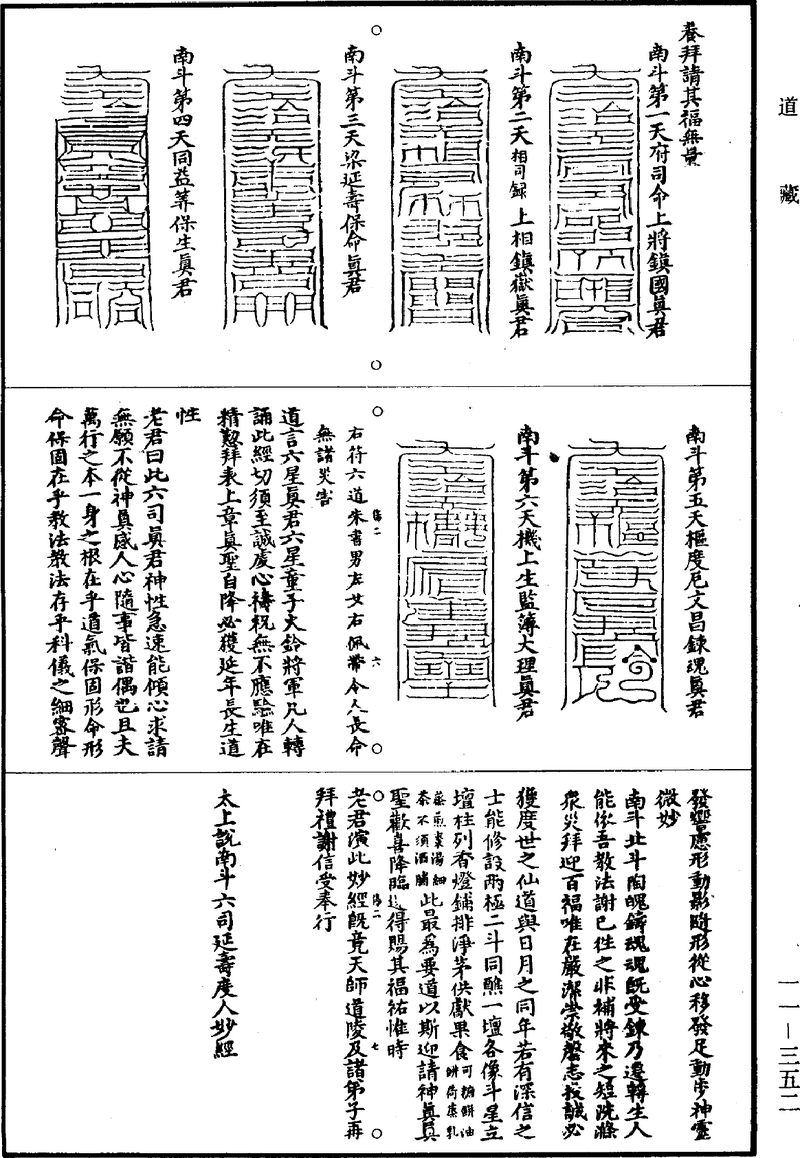 道藏
養拜請其福無量
南斗第一天府司命上將鎮國真君
南斗第二天相司録上相鎮嶽真君
南斗第三天梁延壽保命真君
南斗第四天同益筭保生真君
南斗第五天樞度厄文昌鍊魂真君
南斗第六天機上生監簿大理真君
右符六道朱書男左女右佩帶令人長命
無諸災害
道言六星真君六星童子火鈴將軍凡人轉
誦此經切須至誠虔心禱祝無不應驗唯在
精懃拜表上章真聖自降必獲延年長生道
性
老君曰此六司真君神性急速能傾心求請
無願不從神真感人心隨事皆諧偶也且夫
萬行之本一身之根在乎道氣保固形命形
命保固在乎教法教法存乎科儀之細密聲
發響應形動影隨形從心移發足動步神靈
微妙
南斗北斗陶魄鑄魂魂既受鍊乃遷轉生人
能依吾教法謝已往之非補將來之短洗滌
衆災拜迎百福唯在嚴潔崇敬罄志投誠必
獲度世之仙道與日月之同年若有深信之
士能修設兩極二斗同醮一壇各像斗星立
壇柱列香燈鋪排淨茅供獻果食可糖餅油
餅荷葉乳
茶不須酒脯此最為要道以斯迎請神真真
聖歡喜降臨遂得賜其福祐惟時
老君演此妙經既竟天師道陵及諸弟子再
拜禮謝信受奉行
太上說南斗六司延壽度人妙經
一一—三五二